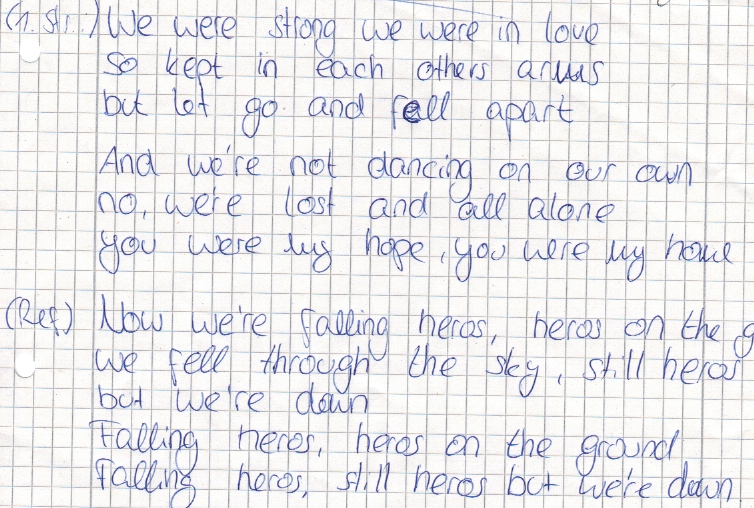 (1. Str.) We were strong we were in love
So kept in each others arms
but let go and fell apart
And we're not dancing on our own
no, we're lost and all alone
you were my hope, you were my home
(Ref.) Now we're falling heros, heros on the g
we fell through the sky, still heros
but we're down
Falling heros, heros on the ground
Falling heros, still heros but we're down